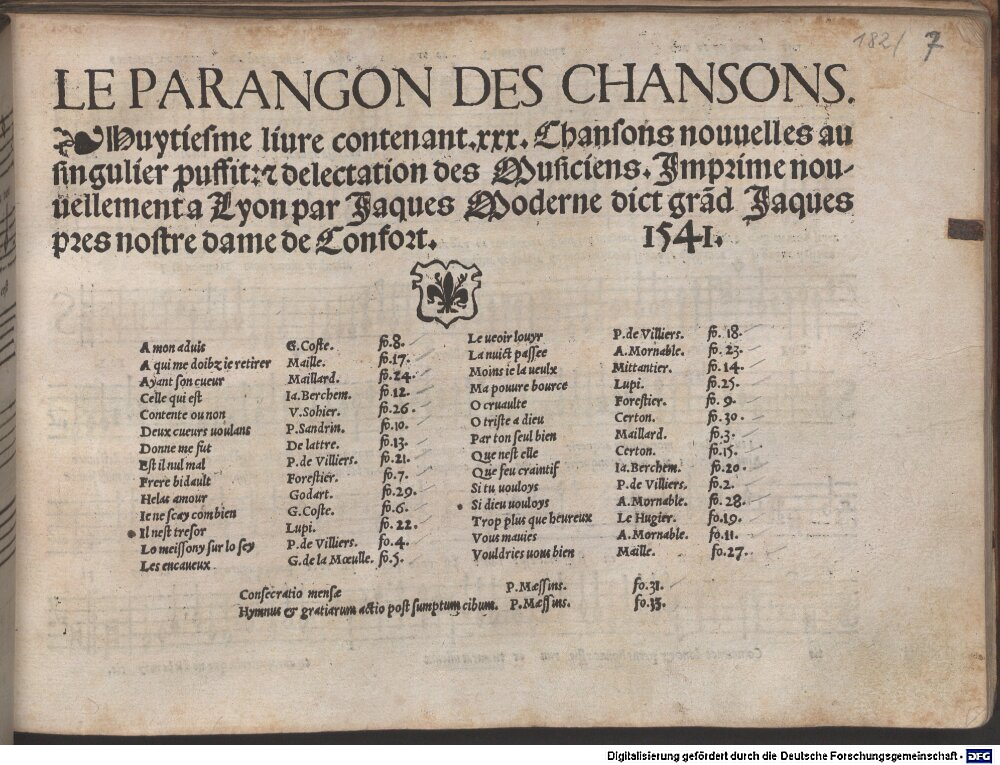 182/ 7
LE PARANGON DES CHANSONS.
Huytiesme liure contenant.xxx. Chansons nouuelles au
singulier puffit:⁊ delectation des Musiciens. Imprime nou-
uellement a Lyon par Jaques Moderne dict grãd Jaques
pres nostre dame de Confort. 1541.
A mon aduis G.Coste. fo.8.
A qui me doibz ie retirer Maille. fo.17.
Ayant son cueur Maillard. fo.24.
Celle qui est Ia.Berchem. fo.12.
Contente ou non V.Sohier. fo.26.
Deux cueurs uoulans P.Sandrin. fo.10.
Donne me fut De lattre. fo.13.
Est il nul mal P.de Villiers. fo.21.
Frere bidault Forestier. fo.7.
Helas amour Godart. fo.29.
Ie ne scay combien G.Coste. fo.6.
Il nest tresor Lupi. fo.22.
Lo meissony sur lo sey P.de Villiers. fo.4.
Les encaueux G.de la Mœulle. fo.5.
Le ueoir louyr P.de Villiers. fo.18.
La nuict passee A.Mornable. fo.23.
Moins ie la ueulx Mittantier. fo.14.
Ma pouure bource Lupi. fo.25.
O cruaulte Forestier. fo.9.
O triste a dieu Certon. fo.30.
Par ton seul bien Maillard. fo.3.
Que nest elle Certon. fo.15.
Que feu craintif Ia.Berchem. fo.20.
Si tu uouloys P.de Villiers. fo.2.
Si dieu uouloys A.Mornable. fo.28.
Trop plus que heureux Le Hugier. fo.19.
Vous mauies A.Mornable. fo.11.
Vouldries uous bien Maille. fo.27.
Consecratio mensæ P.Mæssins. fo.31.
Hymnus & gratiarum actio post sumptum cibum. P.Mæssins. fo.33.
Digitalisierung gefördert durch die Deutsche Forschungsgemeinschaft - DFG